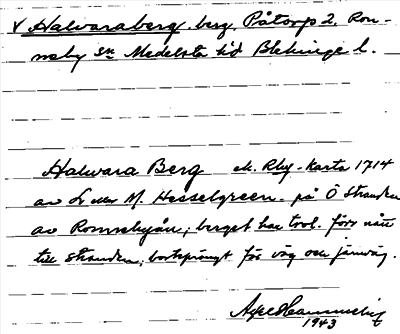 v Halvaraberg. berg. Påtorp 2. Ron-
neby sn Medelsta hd Blekinge l.
Halvara Berg å Rby-karta 1714
av M. Hesselgreen. på Ö stranden
av Ronnebyån; berget har trol. förr nått
till stranden, bortsprängt för väg och järnväg.
1943